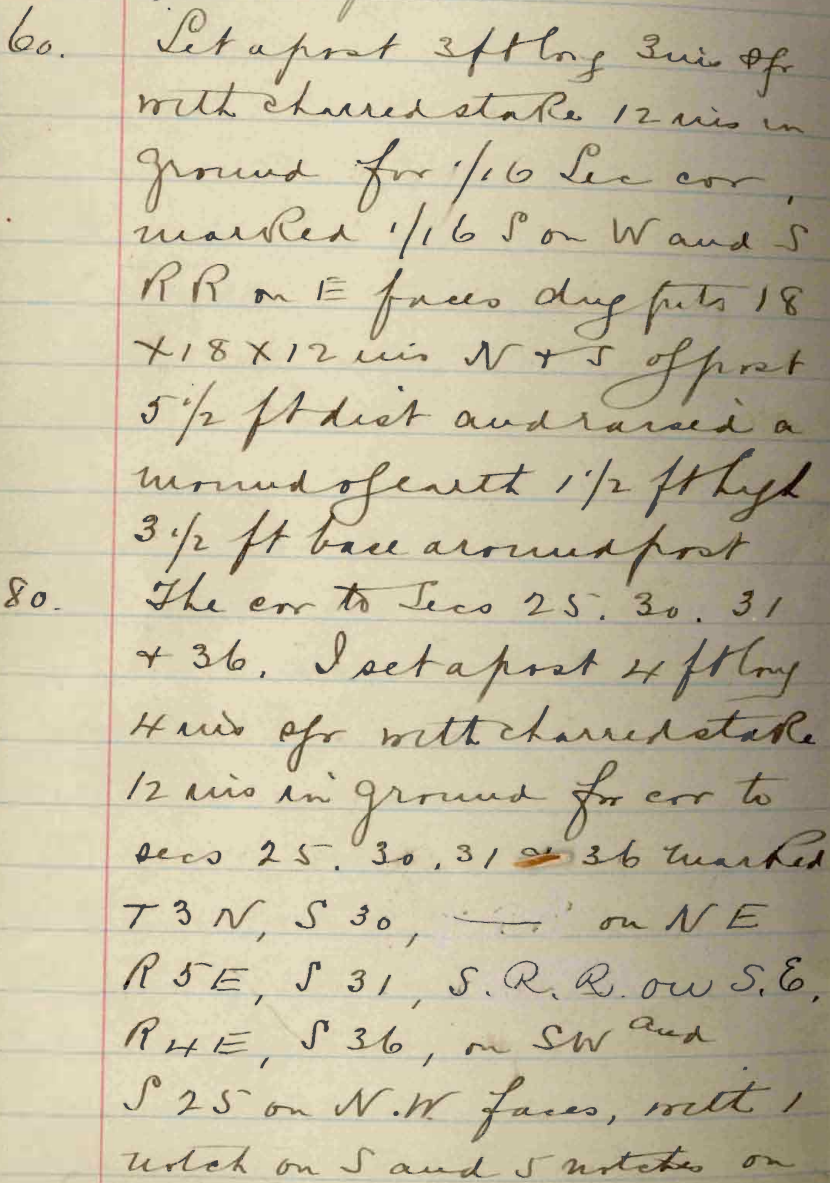 60. Set a post 3 ft long 3 ins sqr
with charred stake 12 ins in
ground for 1/16 Sec cor,
marked 1/16 S on W and S
RR on E faces dug pits 18
X18X12 ins N & S of post
5 1/2 ft dist and raised a
mound of earth 1 1/2 ft high
3 1/2 ft base around post
80. The cor to Secs 25. 30. 31
& 36. I set a post 4 ft long
4 ins sqr with charred stake
12 ins in ground for cor to
secs 25. 30. 31 & 36 marked
T3N, S 30, — on NE
R5E, S 31, S.R.R. on S.E,
R4E, S 36, on SW and
S 25 on N.W. faces, with 1
notch on S and 5 notches on